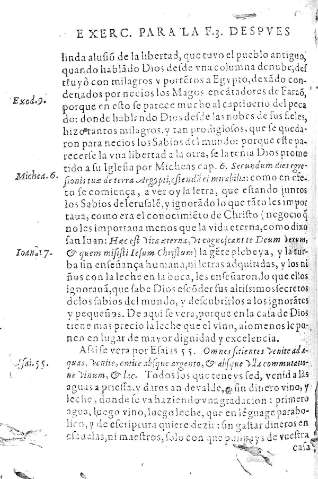 EXERC. PARA LA F.3. DESPVES
linda alusiõ de la libertad, que tuvo el pueblo antiguo,
quando hablãdo Dios desde vna columna de nube, des
truyó con milagros y portẽtos a Egypto, dexãdo con-
denados por necios los Magos encãtadores de Faraõ,
Exod.7.
porque en esto se parece mucho al captiverio del peca
do: donde hablando Dios desde las nobes de sus
hizo tantos milagros, y tan prodigiosos, que se queda-
ron para necios los Sabios del mundo: porque este pa-
recerse la vna libertad a la otra, se la tenia Dios prome
tido a su Iglesia por Micheas cap. 6. Secundum dies egres-
Michea.6.
sionis tuæ de terra Aegypti, ostendã ei mirabilia: como en efe-
to se comiença, a ver oy la letra, que estando juntos
los Sabios de Ierusalẽ, y ignorãdo lo que tãto les impor
taua, como era el conocimiẽto de Christo (negocio q̃
no les importana menos que la vida eterna, como dixo
san Iuan: Hæc est vita æterna, vt cognoscant te Deum verum,
Ioan.17.
& quem misisti Iesum Christum) la gẽte plebeya, y la tur-
ba sin enseñança humana, ni letras adquiridas, y los ni
ños con la leche en la boca, les enseñaron lo que ellos
ignorauã, que sabe Dios escõder sus altissimos secretos
de los sabios del mundo, y descubrirlos a los ignorãtes
y pequeños. De aqui se vera, porque en la casa de Dios
tiene mas precio la leche que el vino, alomenos le po-
nen en lugar de mayor dignidad y excelencia.
Assi se vera por Esaias 55. Omnes sitientes venite ad a-
Isai.55.
quas, venite, emite absque argento, & absque vlla commutatio-
ne vinum, & lac. Todos los que teneys sed, venid a las
aguas a priessa, y daros an de valde, & sin dinero vino, y
leche, donde se va haziendo vna gradacion: primero
agua, luego vino, luego leche, que en lẽguage parabo-
lico, y de escriptura quiere dezir: sin gastar dineros en
escuelas, ni maestros, solo con que de vuestra
casa